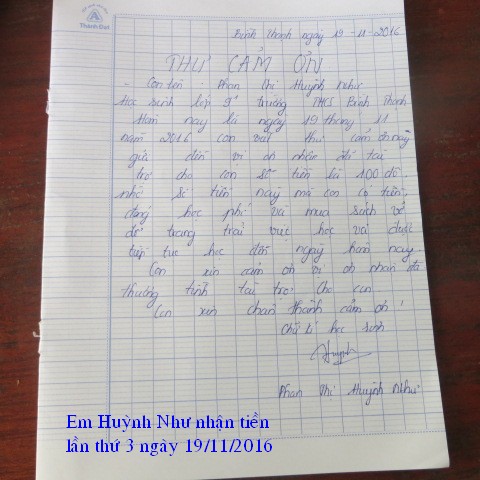 Thành Đạt
Bình Thạnh ngày 19-11-2016
THƯ CẢM ƠN
- Con tên : Phan Thị Huỳnh Như
Học sinh lớp 9⁵ trường THCS Bình Thạnh
Hôm nay là ngày 19 tháng 11
năm 2016 con viết thư cảm ơn này
gửi đến vị ân nhân đã tài
trợ cho con số tiền là 100 đô.
nhờ số tiền này mà con có tiền
đóng học phí và mua sách vở
để trang trải việc học và được
tiếp tục học đến ngày hôm nay.
Con xin cảm ơn vị ân nhân đã
thương tình tài trợ cho con.
Con xin chân thành cảm ơn!
Chữ kí học sinh
Huỳnh
Phan Thị Huỳnh Như
Em Huỳnh Như nhận tiền
lần thứ 3 ngày 19/11/2016